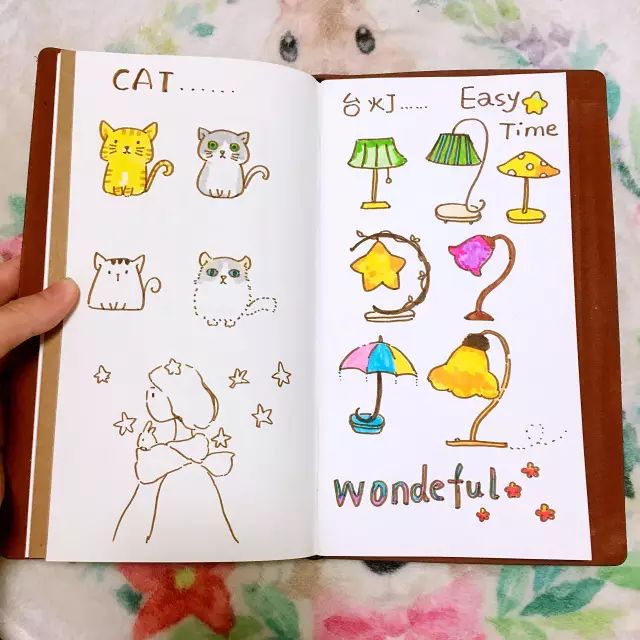 CAT......
台灯......
Easy
Time
wondeful